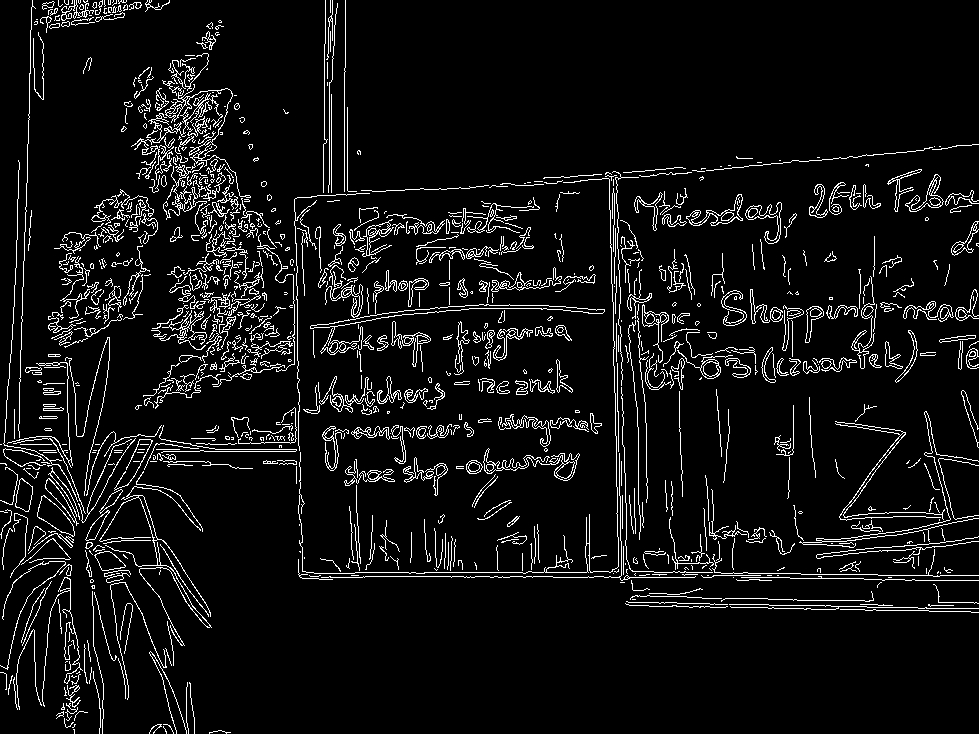 supermarket
market
toy shop - s. z zabawkami
book shop - księgarnia
butcher's - rzeźnik
greengrocer's - warzywniak
shoe shop - obuwniczy
Tuesday, 26th Febru
Topic: Shopping - read
03 (czwartek) - Te